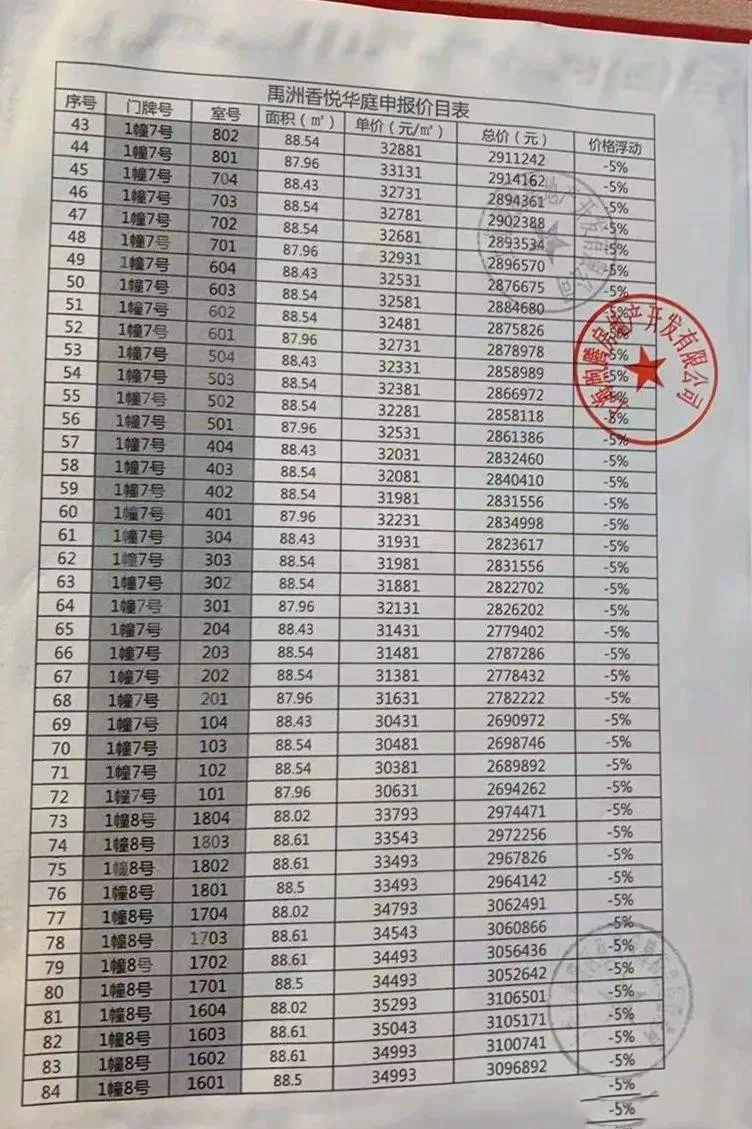 禹洲香悦华庭申报价目表
序号 门牌号 室号 面积（㎡） 单价（元/㎡） 总价（元） 价格浮动
43 1幢7号 802 88.54 32881 2911242 -5%
44 1幢7号 801 87.96 33131 2914162 -5%
45 1幢7号 704 88.43 32731 2894361 -5%
46 1幢7号 703 88.54 32781 2902388 -5%
47 1幢7号 702 88.54 32681 2893534 -5%
48 1幢7号 701 87.96 32931 2896570 -5%
49 1幢7号 604 88.43 32531 2876675 -5%
50 1幢7号 603 88.54 32581 2884680 -5%
51 1幢7号 602 88.54 32481 2875826 -5%
52 1幢7号 601 87.96 32731 2878978 -5%
53 1幢7号 504 88.43 32331 2858989 -5%
54 1幢7号 503 88.54 32381 2866972 -5%
55 1幢7号 502 88.54 32281 2858118 -5%
56 1幢7号 501 87.96 32531 2861386 -5%
57 1幢7号 404 88.43 32031 2832460 -5%
58 1幢7号 403 88.54 32081 2840410 -5%
59 1幢7号 402 88.54 31981 2831556 -5%
60 1幢7号 401 87.96 32231 2834998 -5%
61 1幢7号 304 88.43 31931 2823617 -5%
62 1幢7号 303 88.54 31981 2831556 -5%
63 1幢7号 302 88.54 31881 2822702 -5%
64 1幢7号 301 87.96 32131 2826202 -5%
65 1幢7号 204 88.43 31431 2779402 -5%
66 1幢7号 203 88.54 31481 2787286 -5%
67 1幢7号 202 88.54 31381 2778432 -5%
68 1幢7号 201 87.96 31631 2782222 -5%
69 1幢7号 104 88.43 30431 2690972 -5%
70 1幢7号 103 88.54 30481 2698746 -5%
71 1幢7号 102 88.54 30381 2689892 -5%
72 1幢7号 101 87.96 30631 2694262 -5%
73 1幢8号 1804 88.02 33793 2974471 -5%
74 1幢8号 1803 88.61 33543 2972256 -5%
75 1幢8号 1802 88.61 33493 2967826 -5%
76 1幢8号 1801 88.5 33493 2964142 -5%
77 1幢8号 1704 88.02 34793 3062491 -5%
78 1幢8号 1703 88.61 34543 3060866 -5%
79 1幢8号 1702 88.61 34493 3056436 -5%
80 1幢8号 1701 88.5 34493 3052642 -5%
81 1幢8号 1604 88.02 35293 3106501 -5%
82 1幢8号 1603 88.61 35043 3105171 -5%
83 1幢8号 1602 88.61 34993 3100741 -5%
84 1幢8号 1601 88.5 34993 3096892 -5%
-5%
房地产开发有限公司